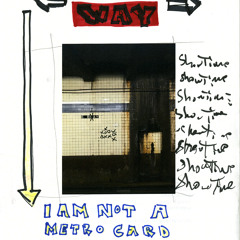 WAY
Showtime
showtime
Showtime
Showtime
Showtime
Showtime
Showtime
Showtime
I AM NOT A
METRO CARD